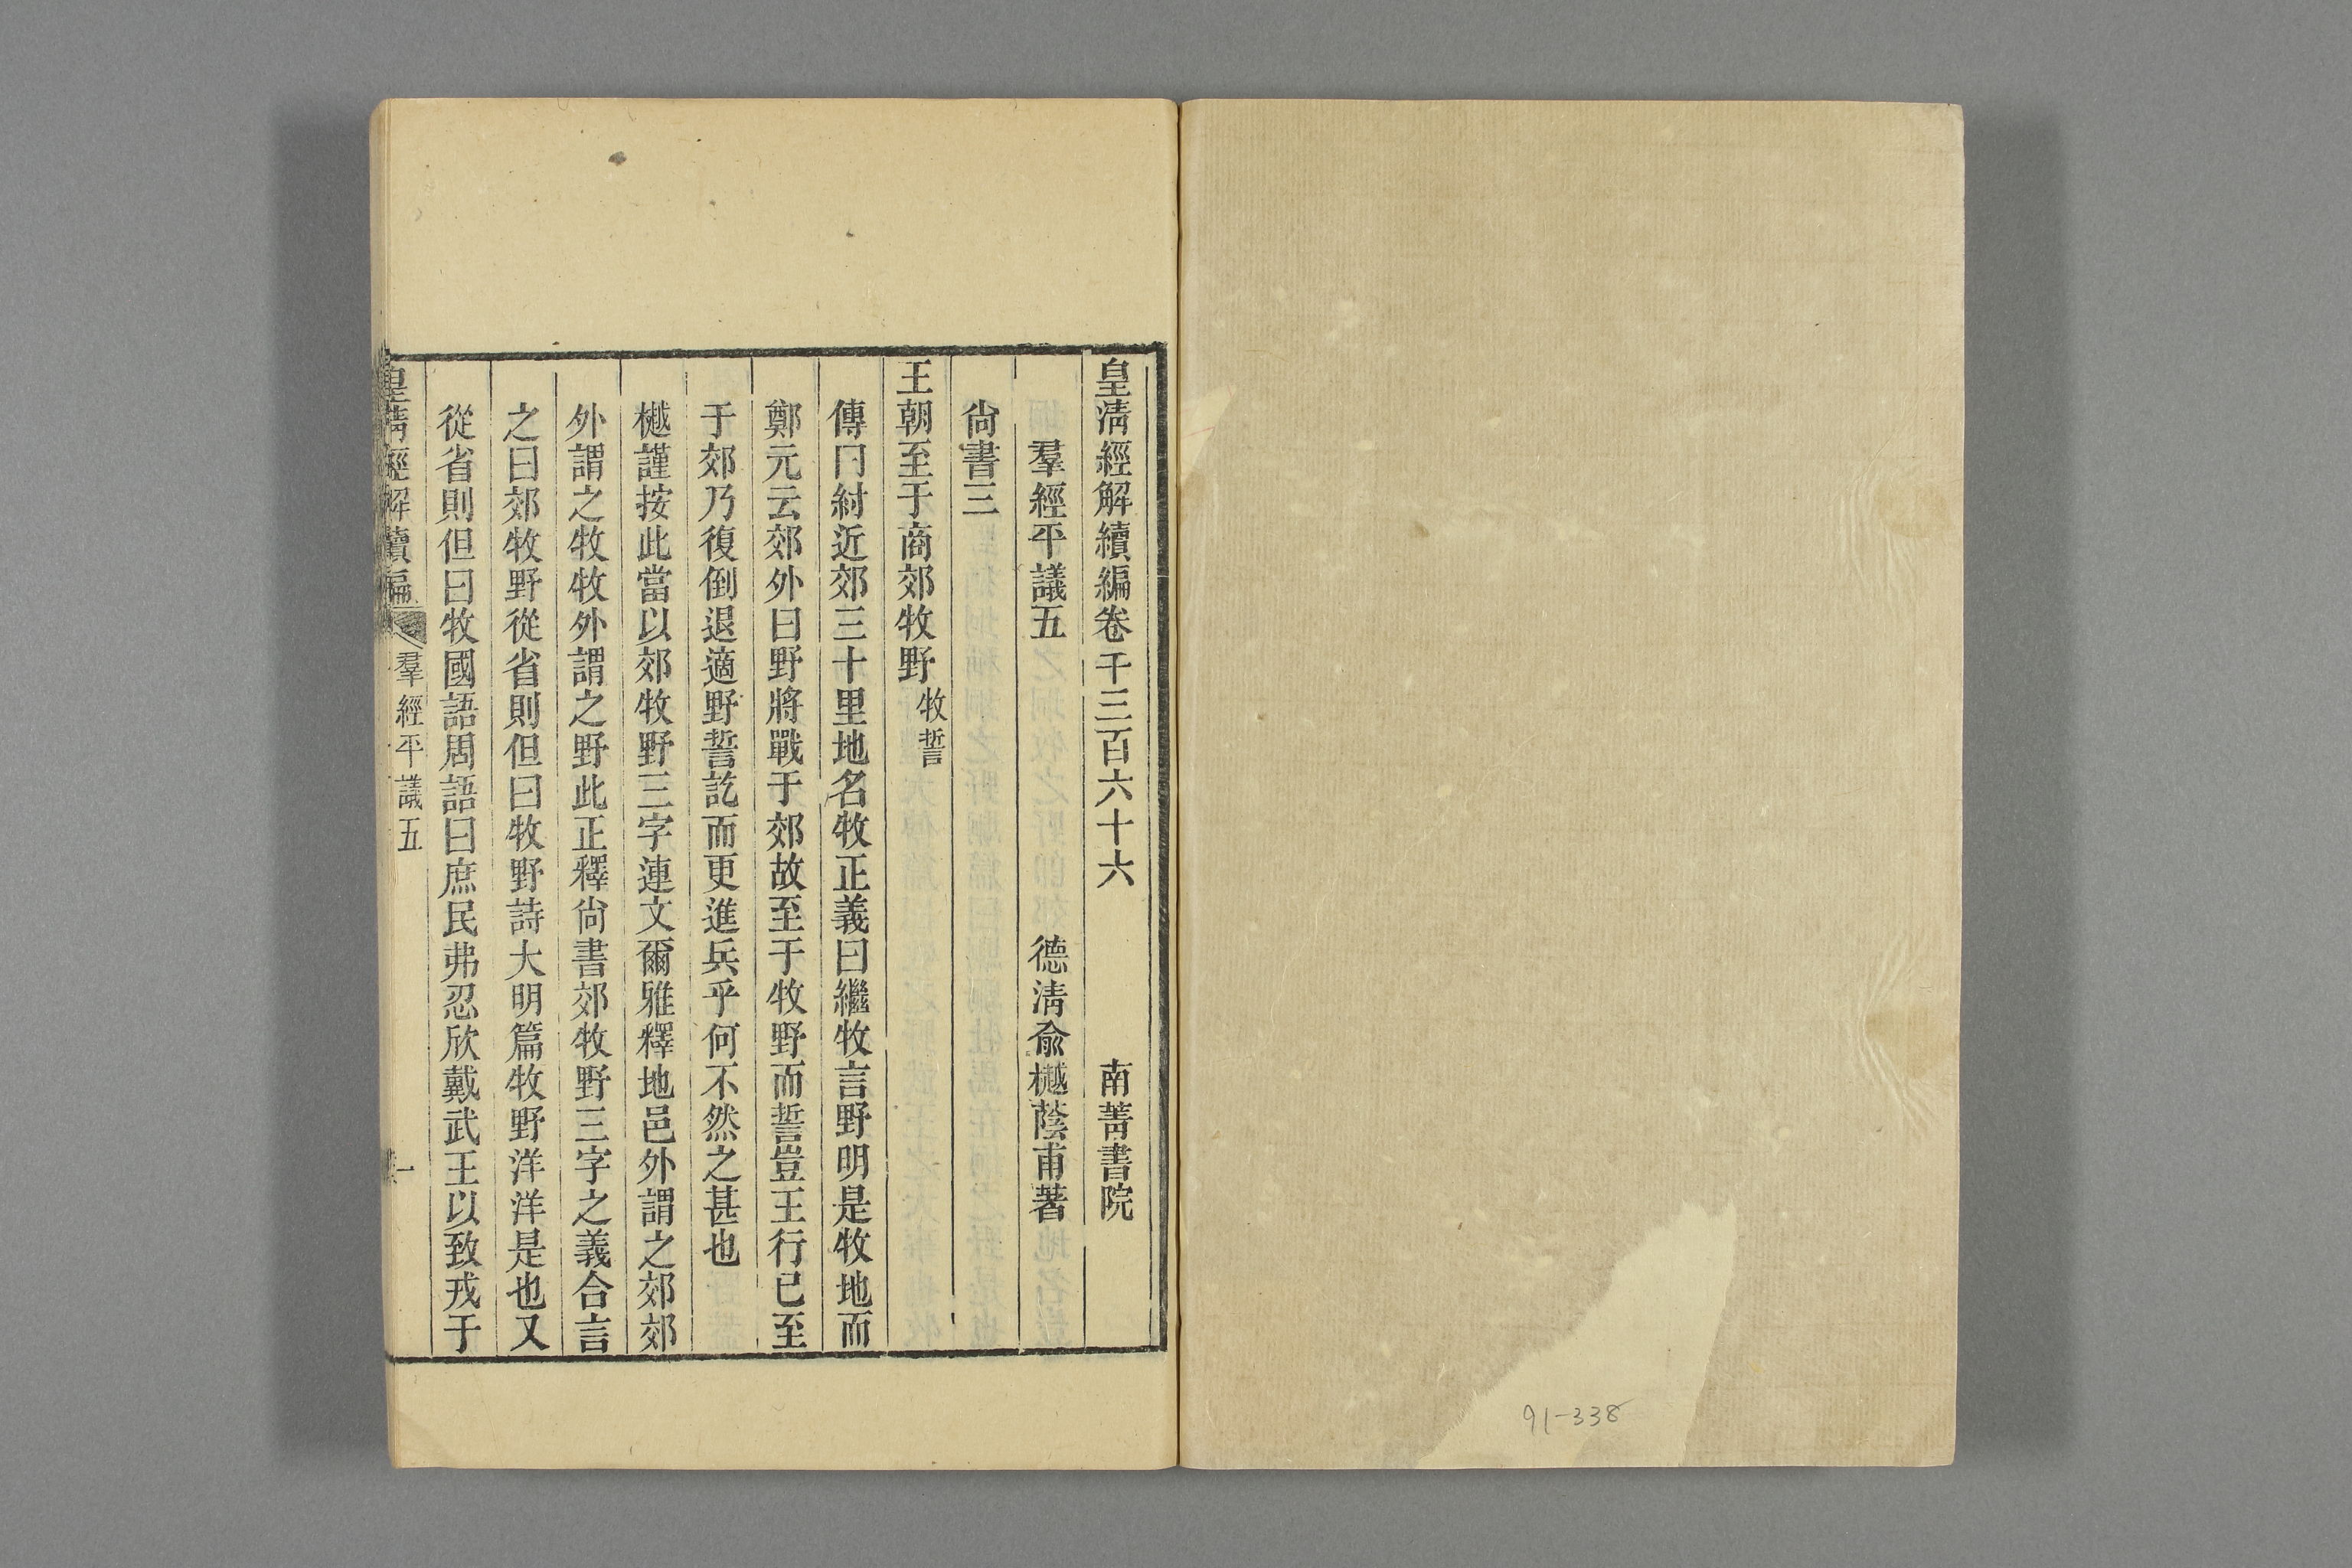 皇清經解續編卷千三百六十六 南菁書院
羣經平議五 德清俞樾蔭甫著
尙書三
王朝至于商郊牧野 牧誓
傳曰紂近郊三十里地名牧正義曰繼牧言野明是牧地而
鄭元云郊外曰野將戰于郊故至于牧野而誓豈王行已至
于郊乃復倒退適野誓訖而更進兵乎何不然之甚也
樾謹按此當以郊牧野三字連文爾雅釋地邑外謂之郊郊
外謂之牧牧外謂之野此正釋尙書郊牧野三字之義合言
之曰郊牧野從省則但曰牧野詩大明篇牧野洋洋是也又
從省則但曰牧國語周語曰庶民弗忍欣戴武王以致戎于
皇清經解續編 羣經平議五 一
91-338